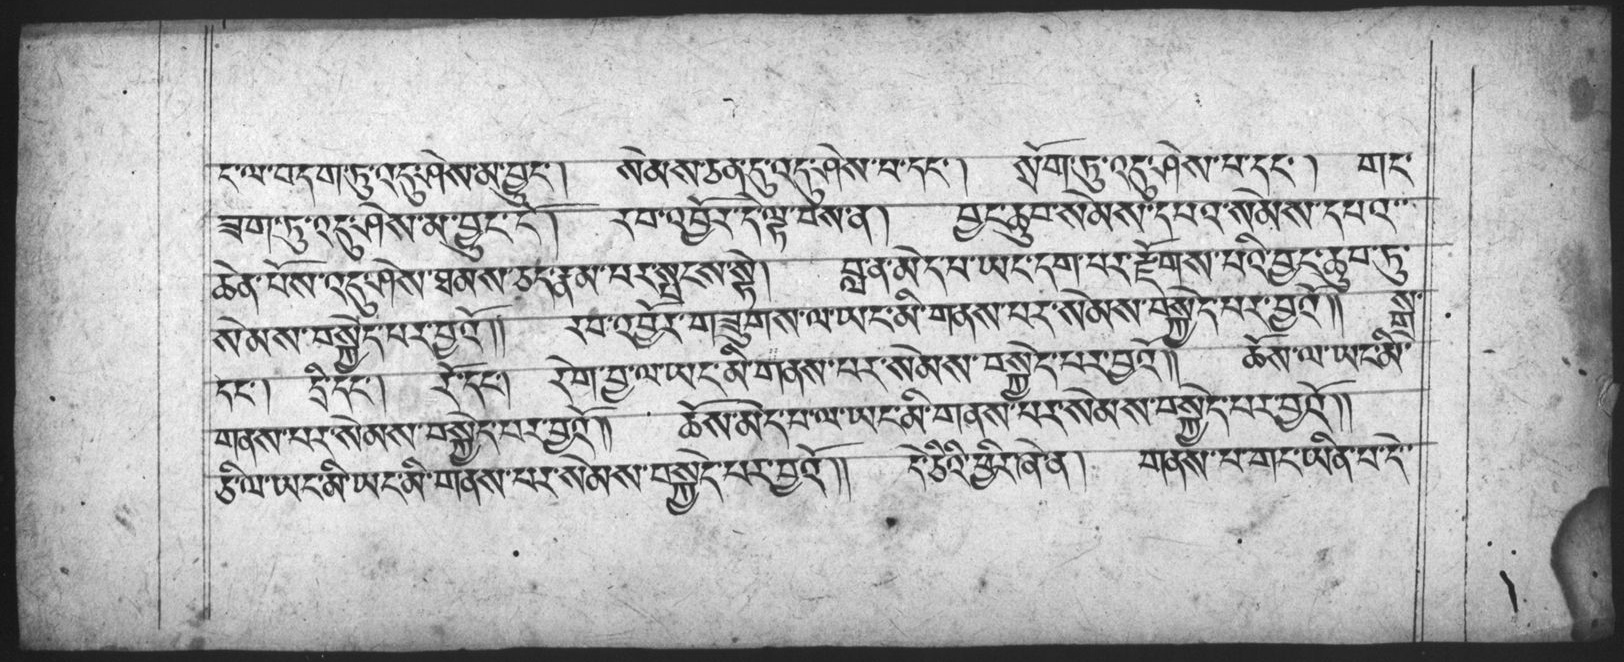 ང་ལ་བདག་ཏུ་འདུ་ཤེས་མ་བྱུང་། སེམས་ཅན་དུ་འདུ་ཤེས་པ་དང་། སྲོག་ཏུ་འདུ་ཤེས་པ་དང་། གང་
ཟག་ཏུ་འདུ་ཤེས་མ་བྱུང་ངོ་། རབ་འབྱོར་དེ་ལྟ་བས་ན། བྱང་ཆུབ་སེམས་དཔའ་སེམས་དཔའ་
ཆེན་པོས་འདུ་ཤེས་ཐམས་ཅད་རྣམ་པར་སྤངས་སྟེ། བླ་ན་མེད་པ་ཡང་དག་པར་རྫོགས་པའི་བྱང་ཆུབ་ཏུ་
སེམས་བསྐྱེད་པར་བྱའོ།། རབ་འབྱོར་གཟུགས་ལ་ཡང་མི་གནས་པར་སེམས་བསྐྱེད་པར་བྱའོ།། སྒྲ་
དང་། དྲི་དང་། རོ་དང་། རེག་བྱ་ལ་ཡང་མི་གནས་པར་སེམས་བསྐྱེད་པར་བྱའོ།། ཆོས་ལ་ཡང་མི་
གནས་པར་སེམས་བསྐྱེད་པར་བྱའོ།། ཆོས་མེད་པ་ལ་ཡང་མི་གནས་པར་སེམས་བསྐྱེད་པར་བྱའོ།།
ཅི་ལ་ཡང་མི་ཡང་མི་གནས་པར་སེམས་བསྐྱེད་པར་བྱའོ།། དེ་ཅིའི་ཕྱིར་ཞེ་ན། གནས་པ་གང་ཡིན་པ་དེ་